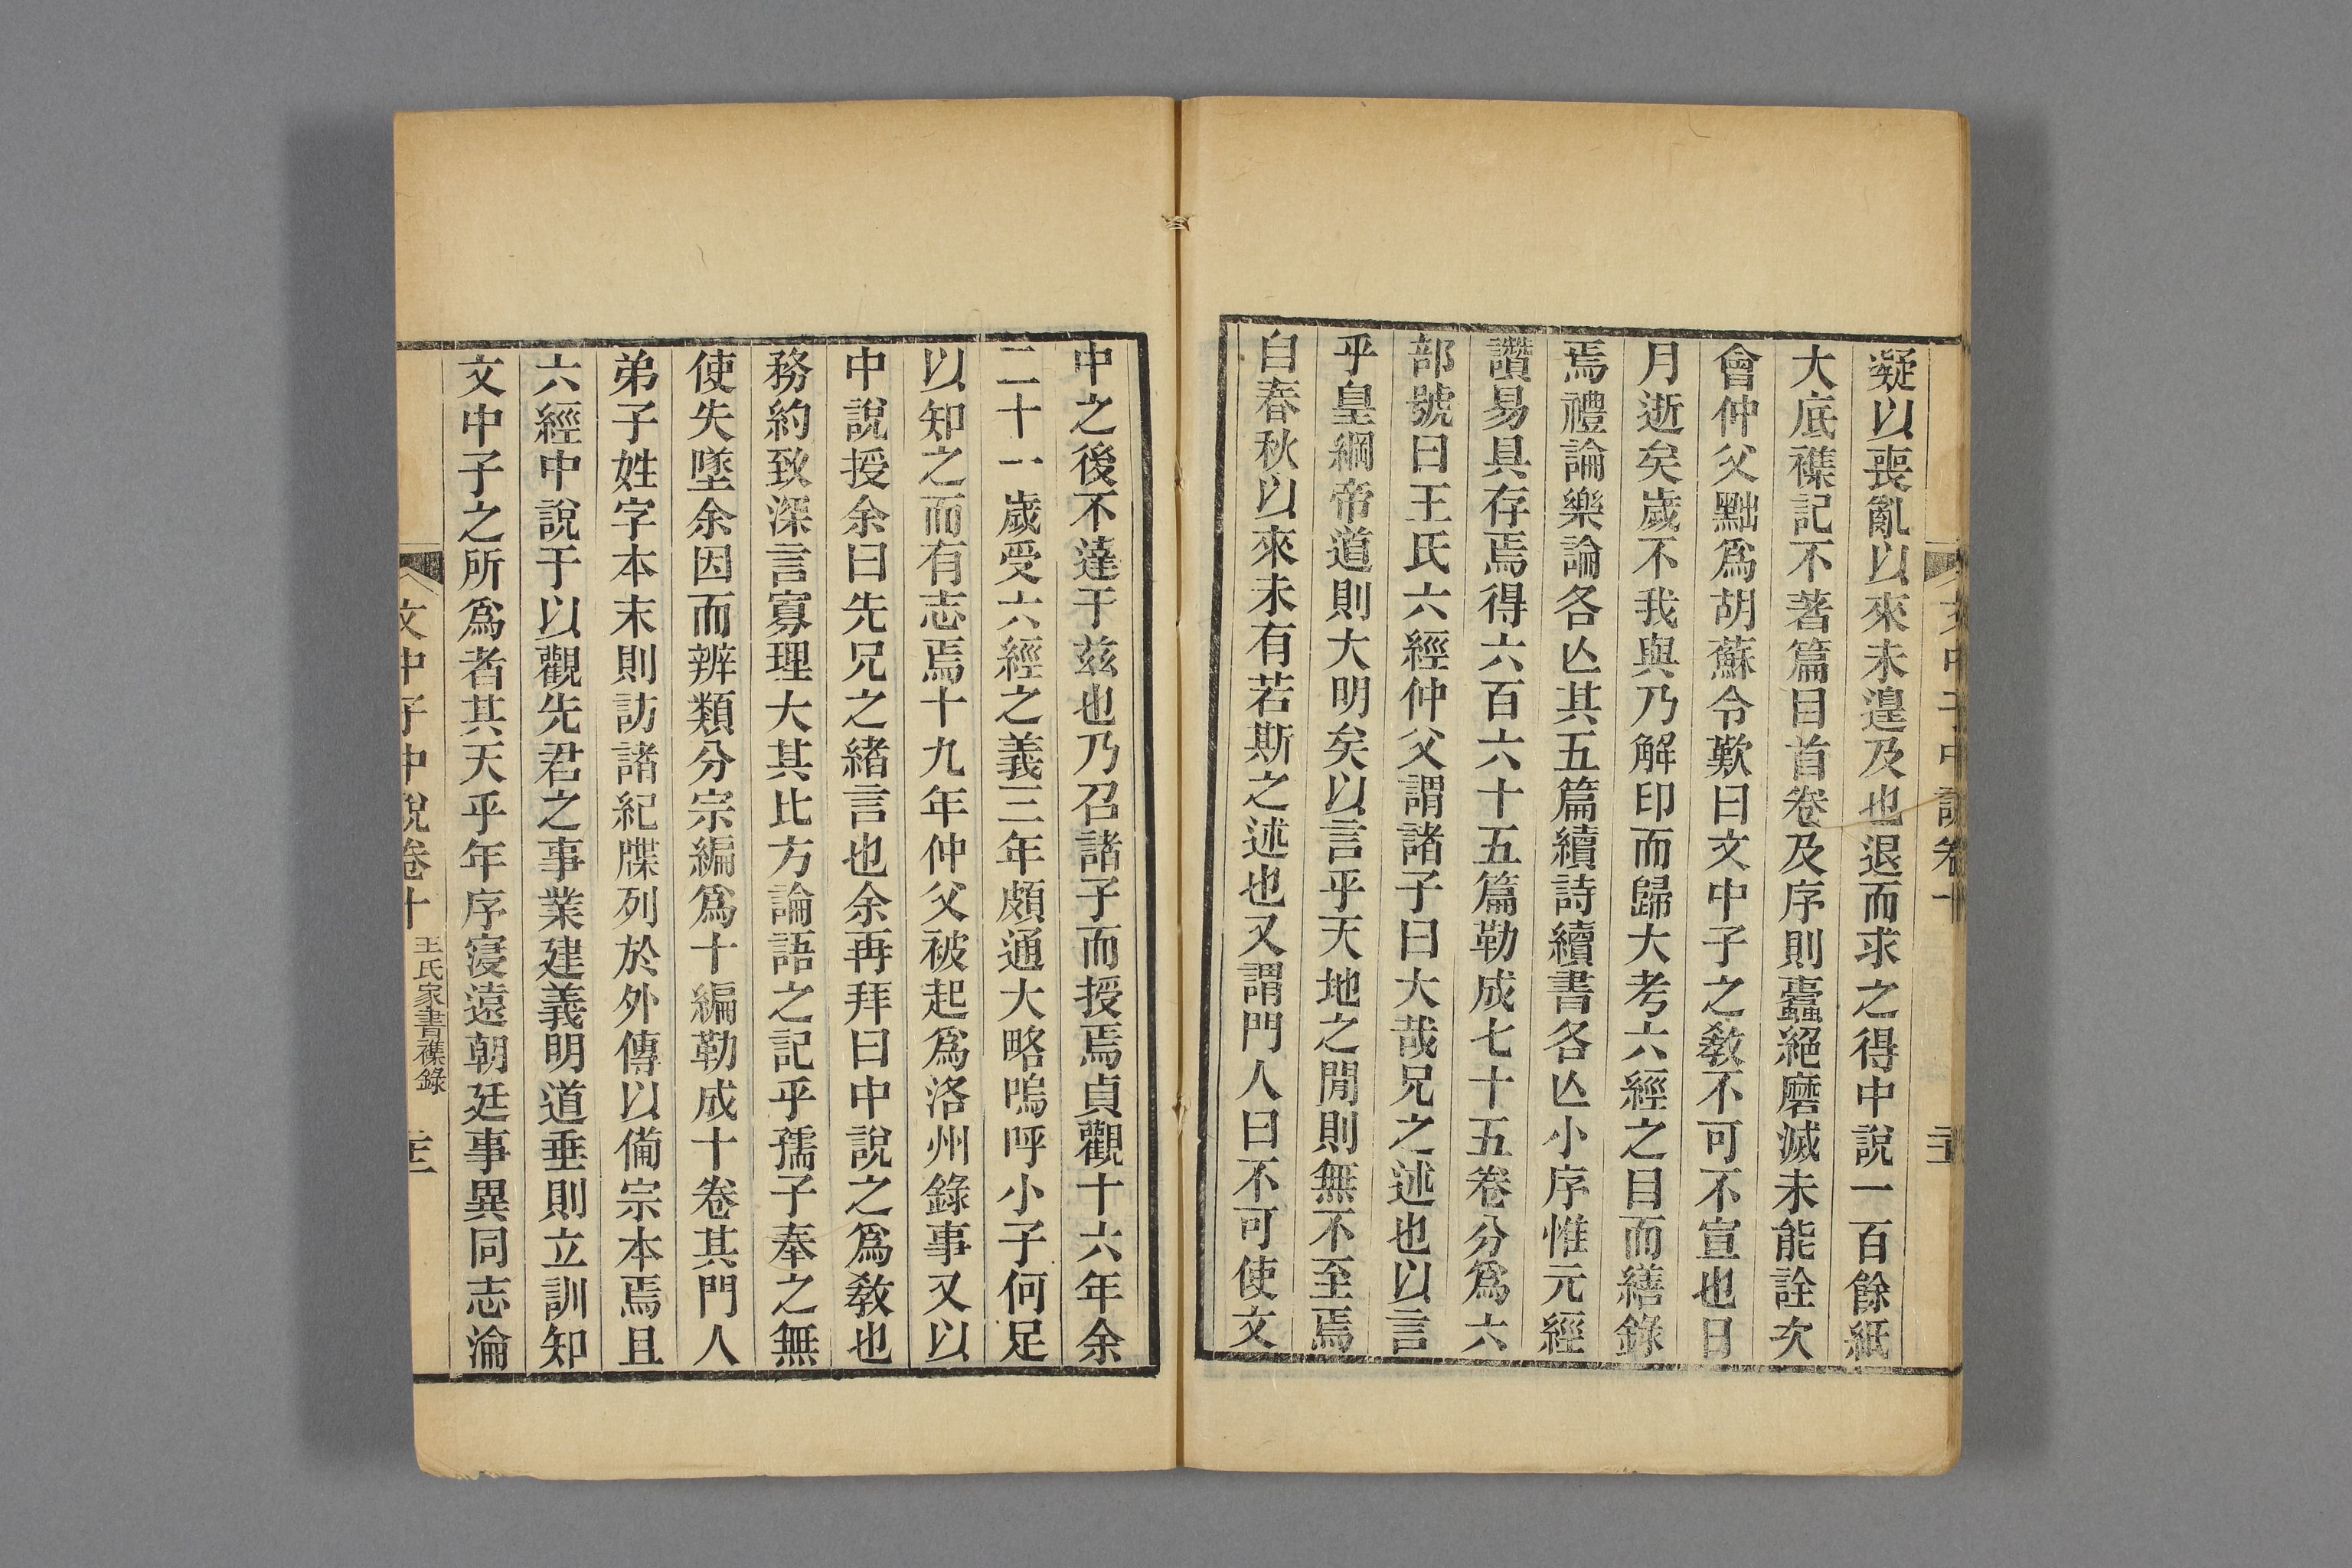 凝以喪亂以來未遑及也退而求之得中說一百餘紙
大底襍記不著篇目首卷及序則蠹絕磨滅未能詮次
會仲父黜爲胡蘇令歎曰文中子之敎不可不宣也日
月逝矣歲不我與乃解印而歸大考六經之目而繕錄
焉禮論樂論各亾其五篇續詩續書各亾小序惟元經
讚易具存焉得六百六十五篇勒成七十五卷分爲六
部號曰王氏六經仲父謂諸子曰大哉兄之述也以言
乎皇綱帝道則大明矣以言乎天地之閒則無不至焉
自春秋以來未有若斯之述也又謂門人曰不可使文
中之後不達于兹也乃召諸子而授焉貞觀十六年余
二十一歲受六經之義三年頗通大略嗚呼小子何足
以知之而有志焉十九年仲父被起爲洛州錄事又以
中說授余曰先兄之緒言也余再拜曰中說之爲敎也
務約致深言寡理大其比方論語之記乎孺子奉之無
使失墜余因而辨類分宗編爲十編勒成十卷其門人
弟子姓字本末則訪諸紀牒列於外傳以備宗本焉且
六經中說于以觀先君之事業建義明道垂則立訓知
文中子之所爲者其天乎年序寖遠朝廷事異同志淪
文中子中說卷十 王氏家書襍錄